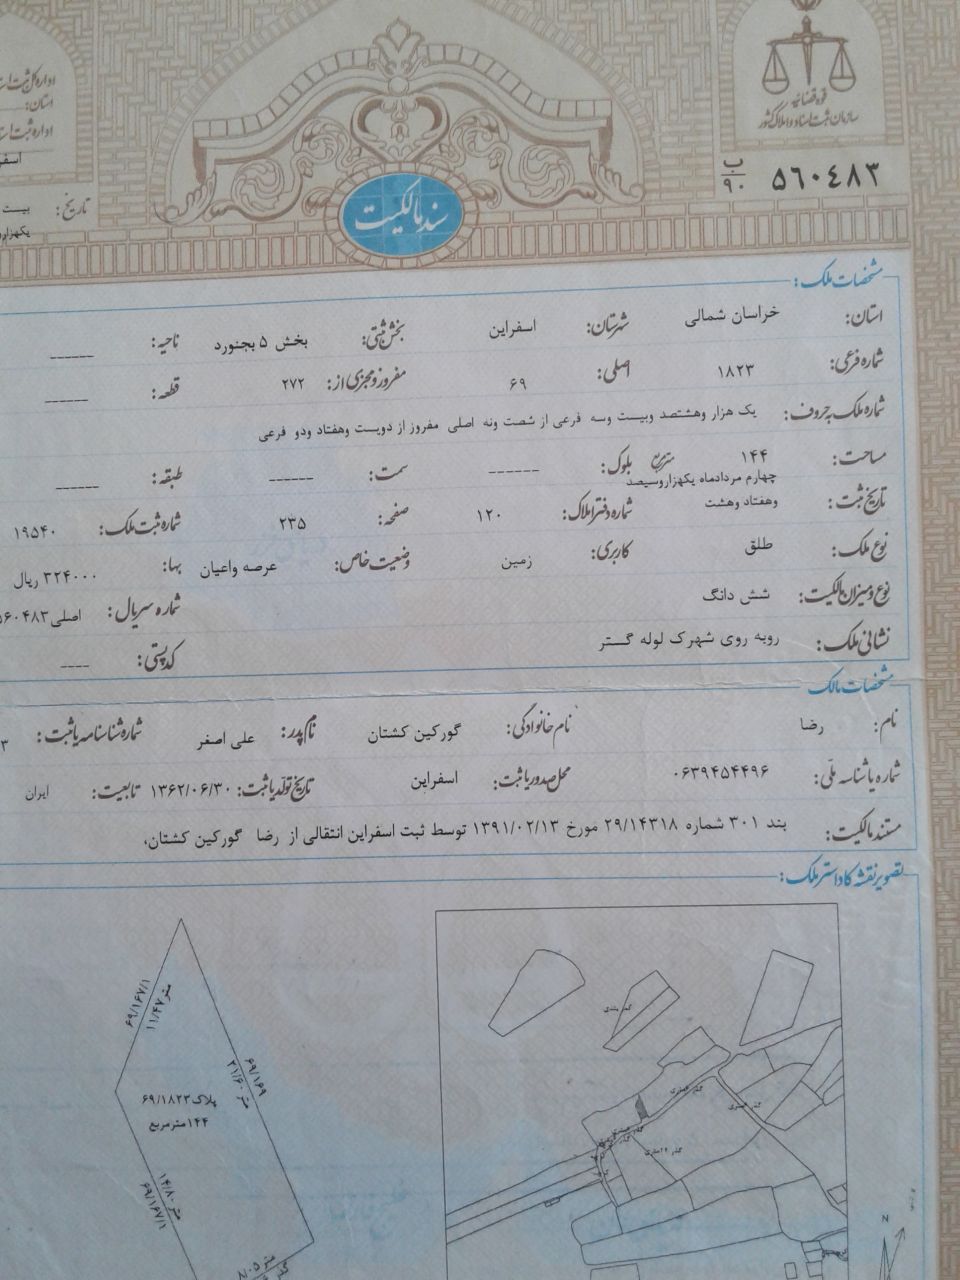 قوه قضائیه
سازمان ثبت اسناد و املاک کشور
اداره کل ثبت
استان:
اداره ثبت
۵۶۰۴۸۳ ب ۹۰
تاریخ: بیست
سند مالکیت
مشخصات ملک:
استان: خراسان شمالی شهرستان: اسفراین بخش ثبتی: بخش ۵ بجنورد ناحیه: ------
شماره فرعی: ۱۸۲۳ اصلی: ۶۹ مفروز و مجزی از: ۲۷۲ قطعه: ------
شماره ملک به حروف: یک هزار وهشتصد وبیست وسه فرعی از شصت ونه اصلی مفروز از دویست وهفتاد ودو فرعی
مساحت: ۱۴۴ متر مربع بلوک: ------ سمت: ------ طبقه: ------
تاریخ ثبت: چهارم مردادماه یکهزاروسیصد وهفتاد وهشت شماره دفتر املاک: ۱۲۰ صفحه: ۲۳۵ شماره ثبت ملک: ۱۹۵۴۰
نوع ملک: طلق کاربری: زمین وضعیت خاص: عرصه واعیان بها: ۳۲۴۰۰۰ ریال
نوع و میزان مالکیت: شش دانگ شماره سریال: اصلی ۵۶۰۴۸۳
نشانی ملک: روبه روی شهرک لوله گستر کد پستی: ----
مشخصات مالک
نام: رضا نام خانوادگی: گورکین کشتان نام پدر: علی اصغر شماره شناسنامه یا ثبت: ۳
شماره یا شناسه ملی: ۰۶۳۹۴۵۴۴۹۶ محل صدور یا ثبت: اسفراین تاریخ تولد یا ثبت: ۱۳۶۲/۰۶/۳۰ تابعیت: ایران
مستند مالکیت: بند ۳۰۱ شماره ۲۹/۱۴۳۱۸ مورخ ۱۳۹۱/۰۲/۱۳ توسط ثبت اسفراین انتقالی از رضا گورکین کشتان،
تصویر نقشه کاداستر ملک:
۶۹/۱۶۷/۱
۱۱/۴۷ متر
۶۹/۱۶۹
۲۱/۶۰ متر
پلاک ۶۹/۱۸۲۳
۱۴۴ متر مربع
۱۴/۸۰ متر
۶۹/۱۶۷/۱
۸/۰۵ متر
N